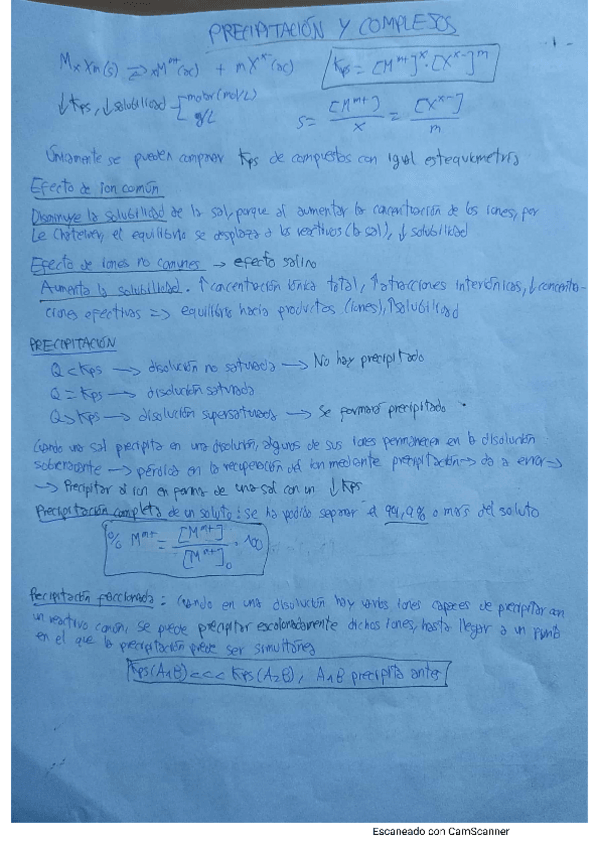 PRECIPITACIÓN Y COMPLEJOS
-1-
MxXm(s) ⇌ xM^m+(ac) + mX^x-(ac) Kps = [M^m+]^x · [X^x-]^m
↓Kps, ↓solubilidad molar (mol/L)
g/L
s = [M^m+]/x = [X^x-]/m
Únicamente se pueden comparar Kps de compuestos con igual estequiometría
Efecto de ion común
Disminuye la solubilidad de la sal, porque al aumentar la concentración de los iones, por
Le Chatelier, el equilibrio se desplaza a los reactivos (la sal), ↓ solubilidad
Efecto de iones no comunes → efecto salino
Aumenta la solubilidad. ↑concentración iónica total, ↑atracciones interiónicas, ↓concentra-
ciones efectivas => equilibrio hacia productos (iones), ↑solubilidad
PRECIPITACIÓN
Q < Kps → disolución no saturada → No hay precipitado
Q = Kps → disolución saturada
Q > Kps → disolución supersaturada → Se formará precipitado
Cuando una sal precipita en una disolución, algunos de sus iones permanecen en la disolución
sobrenadante → pérdida en la recuperación del ion mediante precipitación → da a error →
→ Precipitar al ion en forma de una sal con un ↓Kps
Precipitación completa de un soluto: se ha podido separar el 99,9% o más del soluto
% M^m+ = [M^m+]/[M^m+]₀ · 100
Precipitación fraccionada: Cuando en una disolución hay varios iones capaces de precipitar con
un reactivo común, se puede precipitar escalonadamente dichos iones, hasta llegar a un punto
en el que la precipitación puede ser simultánea
Kps(A₁B) <<< Kps(A₂B), A₁B precipita antes
Escaneado con CamScanner